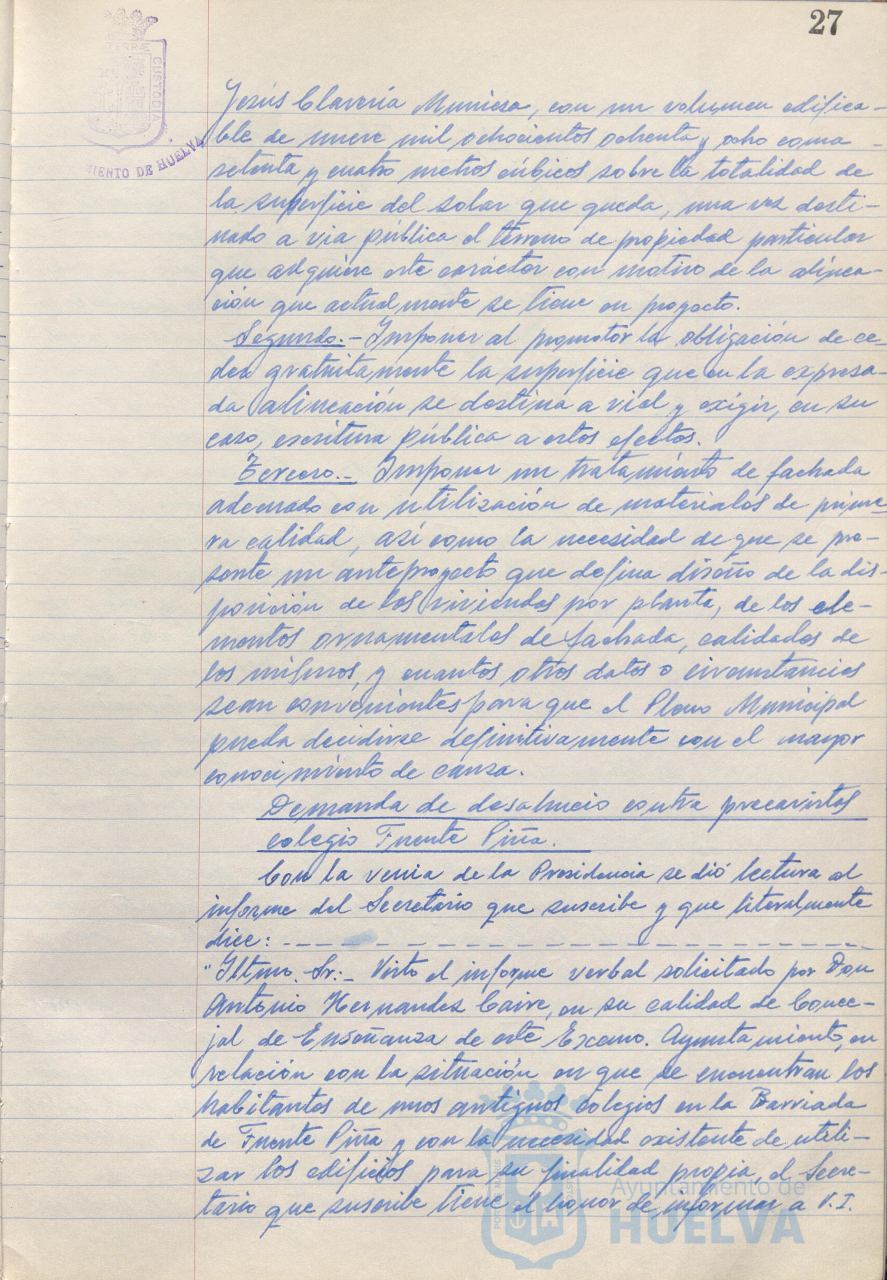 27
TERRAE
CUSTODIA
MIENTO DE HUELVA
Jesús Clavería Muniesa, con un volumen edifica-
ble de nueve mil ochocientos ochenta y ocho coma
setenta y cuatro metros cúbicos sobre la totalidad de
la superficie del solar que queda, una vez desti-
nado a via pública el terreno de propiedad particular
que adquiere este carácter con motivo de la alinea-
ción que actualmente se tiene en proyecto.
Segundo.- Imponer al promotor la obligación de ce-
der gratuitamente la superficie que en la expresa-
da alineación se destina a vial y exigir, en su
caso, escritura pública a estos efectos.
Tercero.- Imponer un tratamiento de fachada
adecuado con utilización de materiales de prime-
ra calidad, así como la necesidad de que se pre-
sente un anteproyecto que defina diseño de la dis-
posición de las viviendas por planta, de los ele-
mentos ornamentales de fachada, calidades de
los mismos, y cuantos otros datos o circunstancias
sean convenientes para que el Pleno Municipal
pueda decidirse definitivamente con el mayor
conocimiento de causa.
Demanda de desahucio contra precaristas
colegio Fuente Piña.
Con la venia de la Presidencia se dió lectura al
informe del Secretario que suscribe y que literalmente
dice: - - - - - - - - - - - - - - - - - -
"Iltmo. Sr.:- Visto el informe verbal solicitado por Don
Antonio Hernandez Caire, en su calidad de Conce-
jal de Enseñanza de este Excmo. Ayuntamiento, en
relación con la situación en que se encuentran los
habitantes de unos antiguos colegios en la Barriada
de Fuente Piña y con la necesidad existente de utili-
zar los edificios para su finalidad propia, el Secre-
tario que suscribe tiene el honor de informar a V.I.
Ayuntamiento de
HUELVA